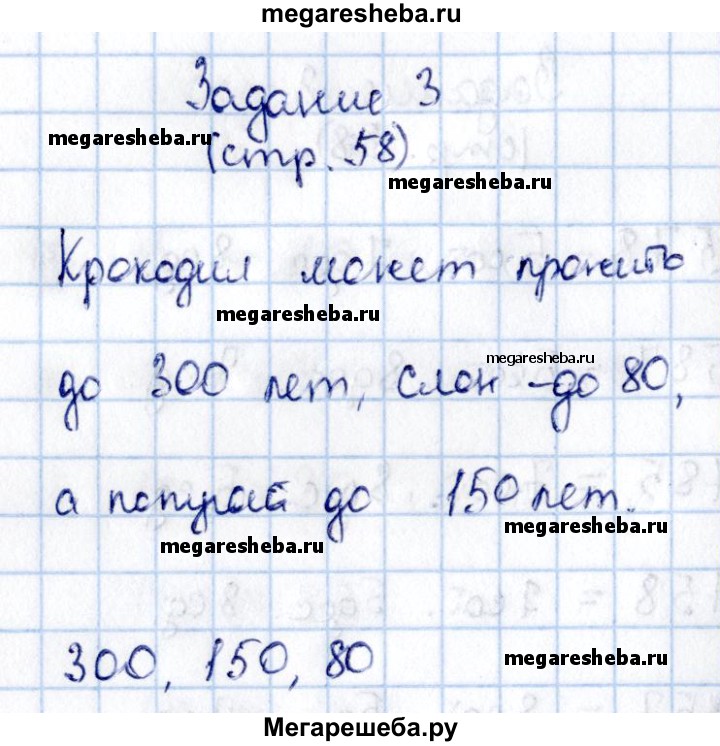 megaresheba.ru
Задание 3
megaresheba.ru
(стр. 58)
megaresheba.ru
Крокодил может прожить
megaresheba.ru
megaresheba.ru
до 300 лет, слон -до 80,
а попугай до 150 лет.
megaresheba.ru
megaresheba.ru
300, 150, 80
megaresheba.ru
Мегарешеба.ру